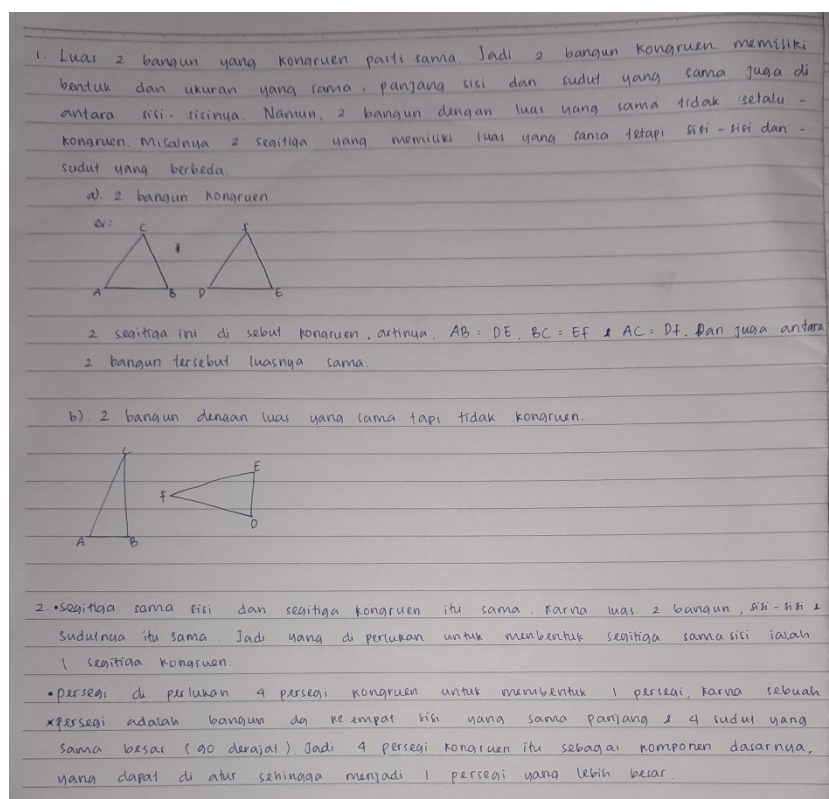 1. Luas 2 bangun yang kongruen pasti sama. Jadi 2 bangun kongruen memiliki
bentuk dan ukuran yang sama, panjang sisi dan sudut yang sama juga di
antara sisi-sisinya. Namun, 2 bangun dengan luas yang sama tidak selalu -
kongruen. Misalnya 2 segitiga yang memiliki luas yang sama tetapi sisi-sisi dan -
sudut yang berbeda.
a). 2 bangun kongruen
ex:
C f
A B D E
2 segitiga ini di sebut kongruen, artinya, AB = DE, BC = EF & AC = Df. Dan juga antara
2 bangun tersebut luasnya sama.
b). 2 bangun dengan luas yang sama tapi tidak kongruen.
C
E
f
D
A B
2. •segitiga sama sisi dan segitiga kongruen itu sama. Karna luas 2 bangun, sisi-sisi &
sudutnya itu sama. Jadi yang di perlukan untuk menbentuk segitiga sama sisi ialah
1 segitiga kongruen.
•persegi di perlukan 4 persegi kongruen untuk membentuk 1 persegi, karna sebuah
*persegi adalah bangun dg ke empat sisi yang sama panjang & 4 sudut yang
sama besar (90 derajat). Jadi 4 persegi kongruen itu sebagai komponen dasarnya,
yang dapat di atur sehingga menjadi 1 persegi yang lebih besar.